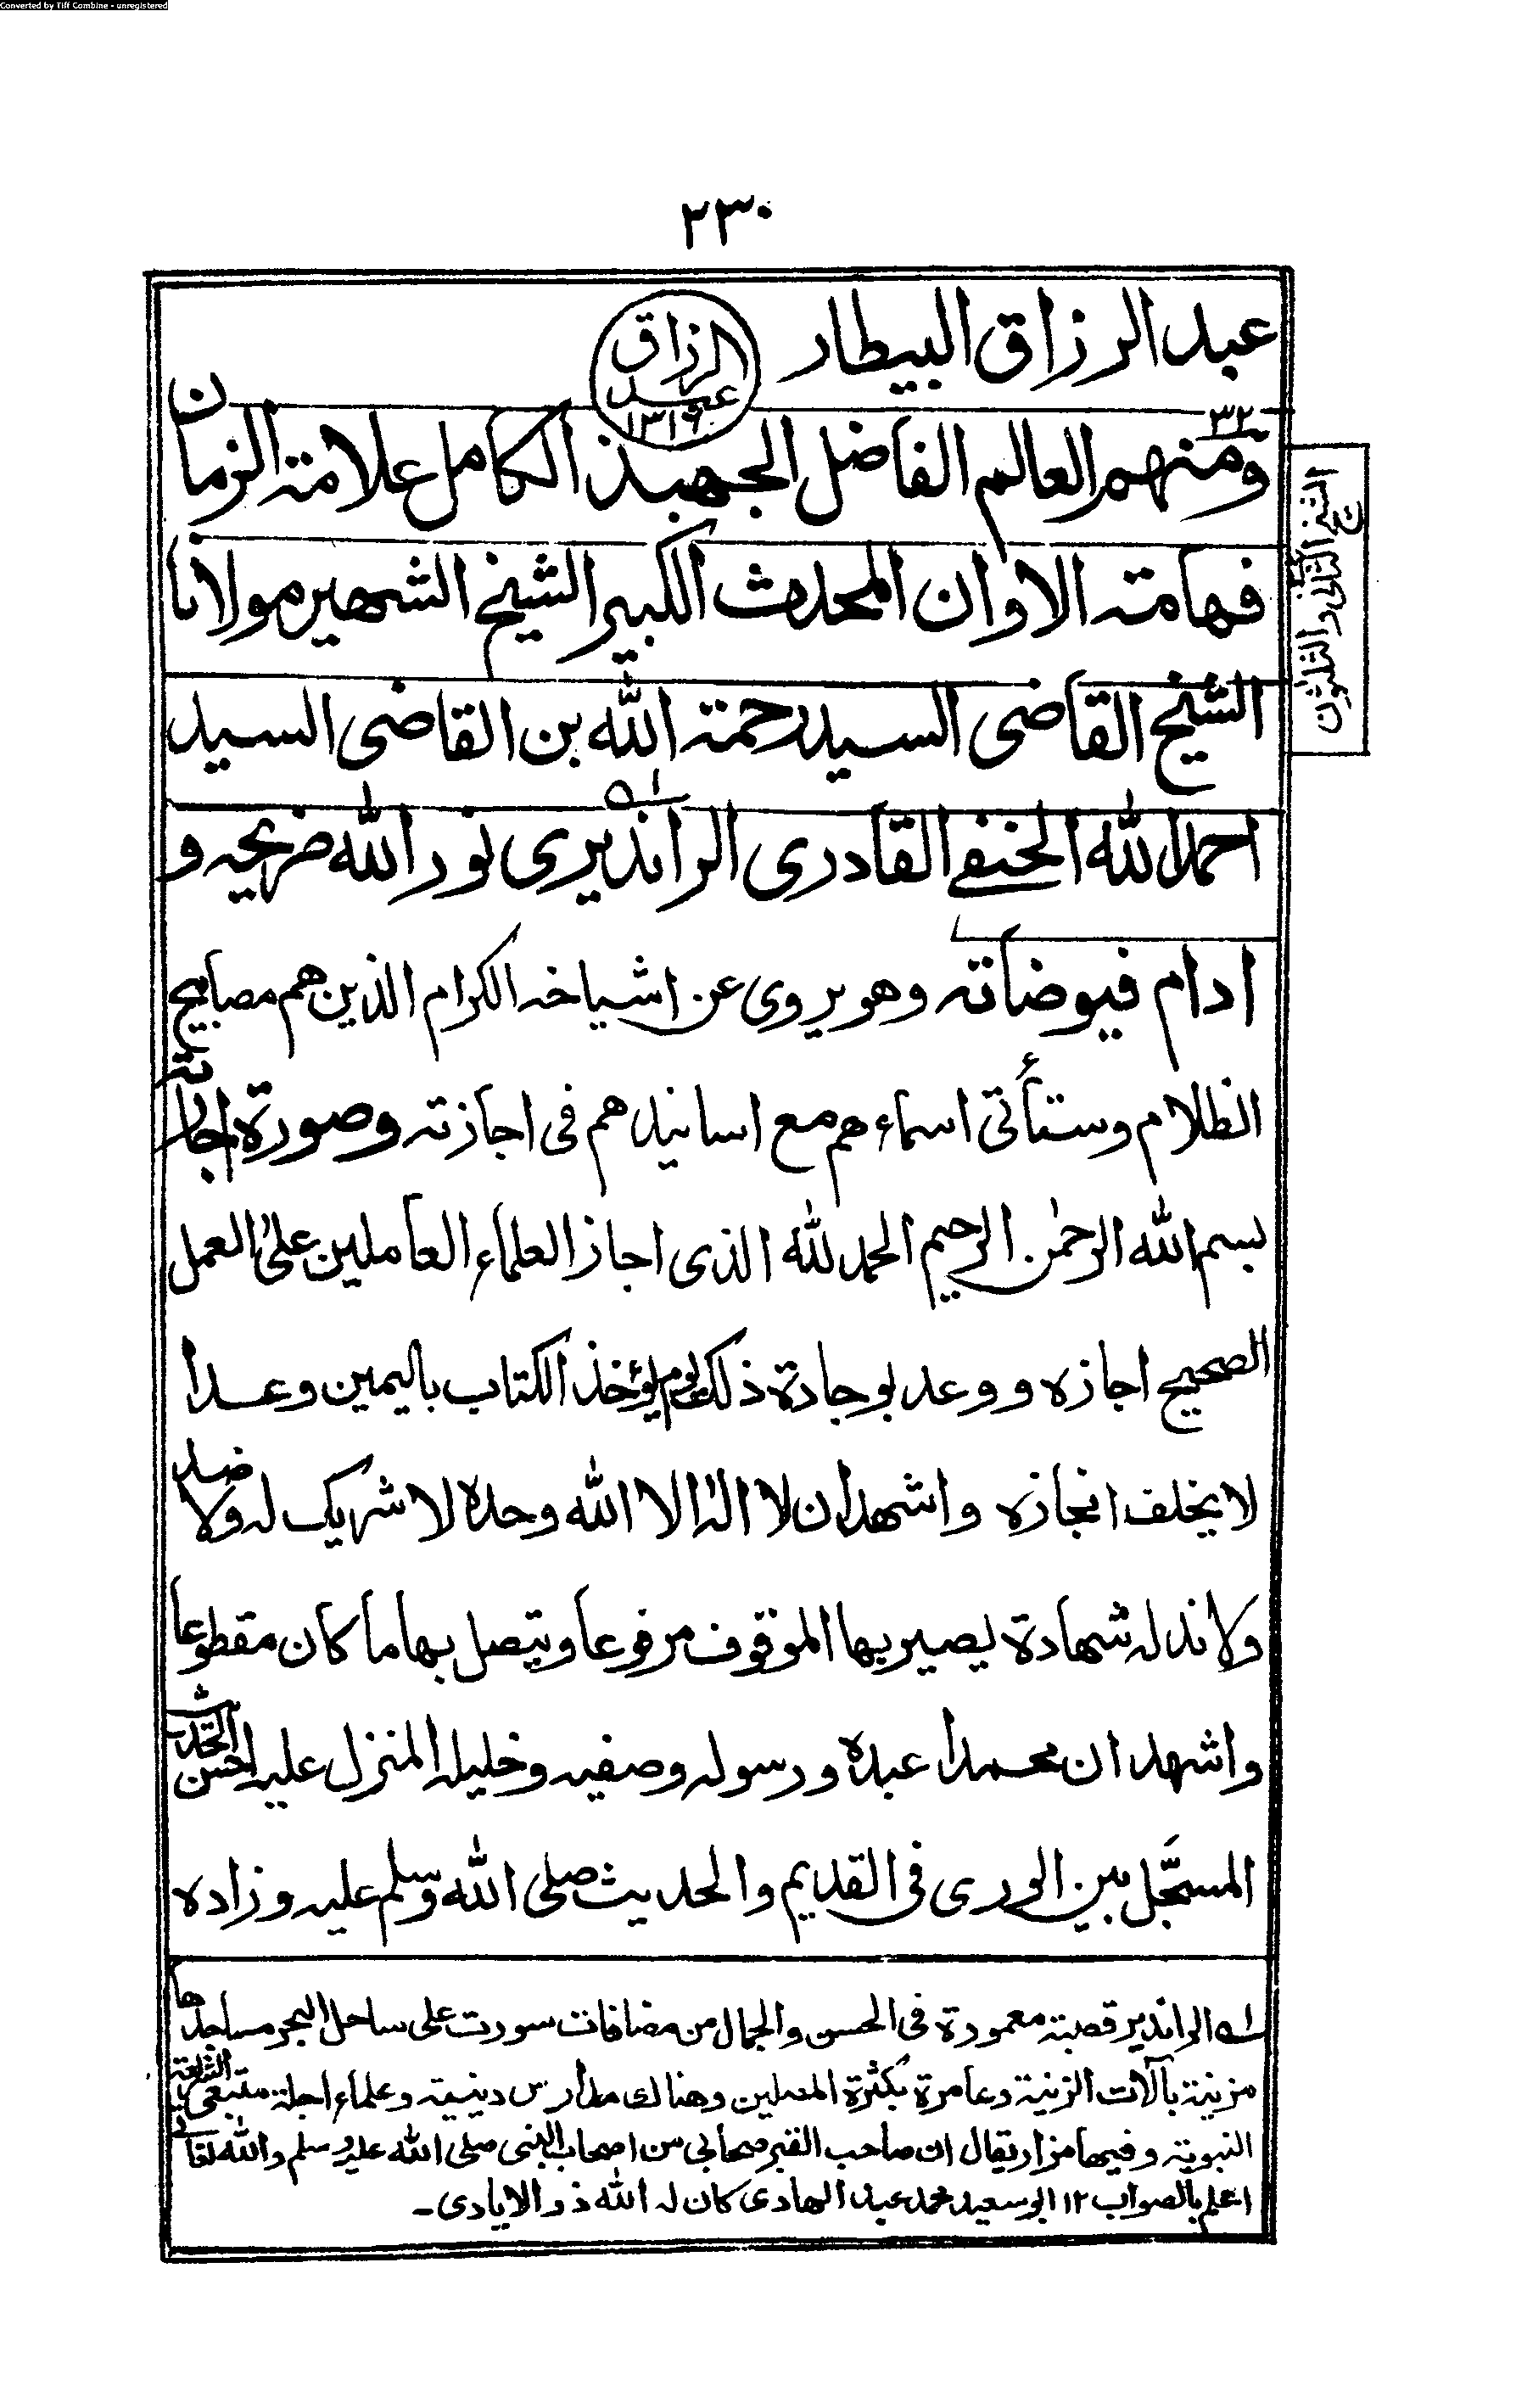 Converted by Tiff Combine - unregistered
٢٣٠
عبد الرزاق البيطار
الرزاق
عبد
١٣١٦
٣٢
ومنهم العالم الفاضل الجهبذ الكامل علامة الزمان
فهامة الاوان المحدث الكبير الشيخ الشهير مولانا
الشيخ القاضى السيد رحمة الله بن القاضى السيد
احمد الله الحنفى القادرى الراندیرى نور الله ضريحه و
ادام فيوضاته وهو يروى عن اشياخه الكرام الذين هم مصابيح
الظلام وستأتى اسماءهم مع اسانيدهم فى اجازته وصورة اجازته
بسم الله الرحمٰن الرحيم الحمد لله الذى اجاز العلماء العاملين على العمل
الصحيح اجازه ووعد بوجادة ذلك يوم يؤخذ الكتاب باليمين وعدا
لا يخلف انجازه واشهد ان لا الٰه الا الله وحده لا شريك له ولا ضد
ولا ند له شهادة يصير بها الموقوف مرفوعا ويتصل بها ما كان مقطوعا
واشهد ان محمدا عبده ورسوله وصفيه وخليله المنزل عليه احسن الحديث
المسجّل بين الورى فى القديم والحديث صلى الله وسلم عليه وزاده
الشيخ الثانى والثلثون
١ـه الراندير قصبة معمورة فى الحسن والجمال من مضافات سورت على ساحل البحر مساجدها
مزينة بآلات الزينة وعامرة بكثرة المصلين وهناك مدارس دينية وعلماء اجلة متبعى الشريعة
النبوية وفيها مزار يقال ان صاحب القبر صحابى من اصحاب النبى صلى الله عليه وسلم والله تعالى
اعلم بالصواب ١٢ ابو سعيد محمد عبد الهادى كان له الله ذو الايادى ـ